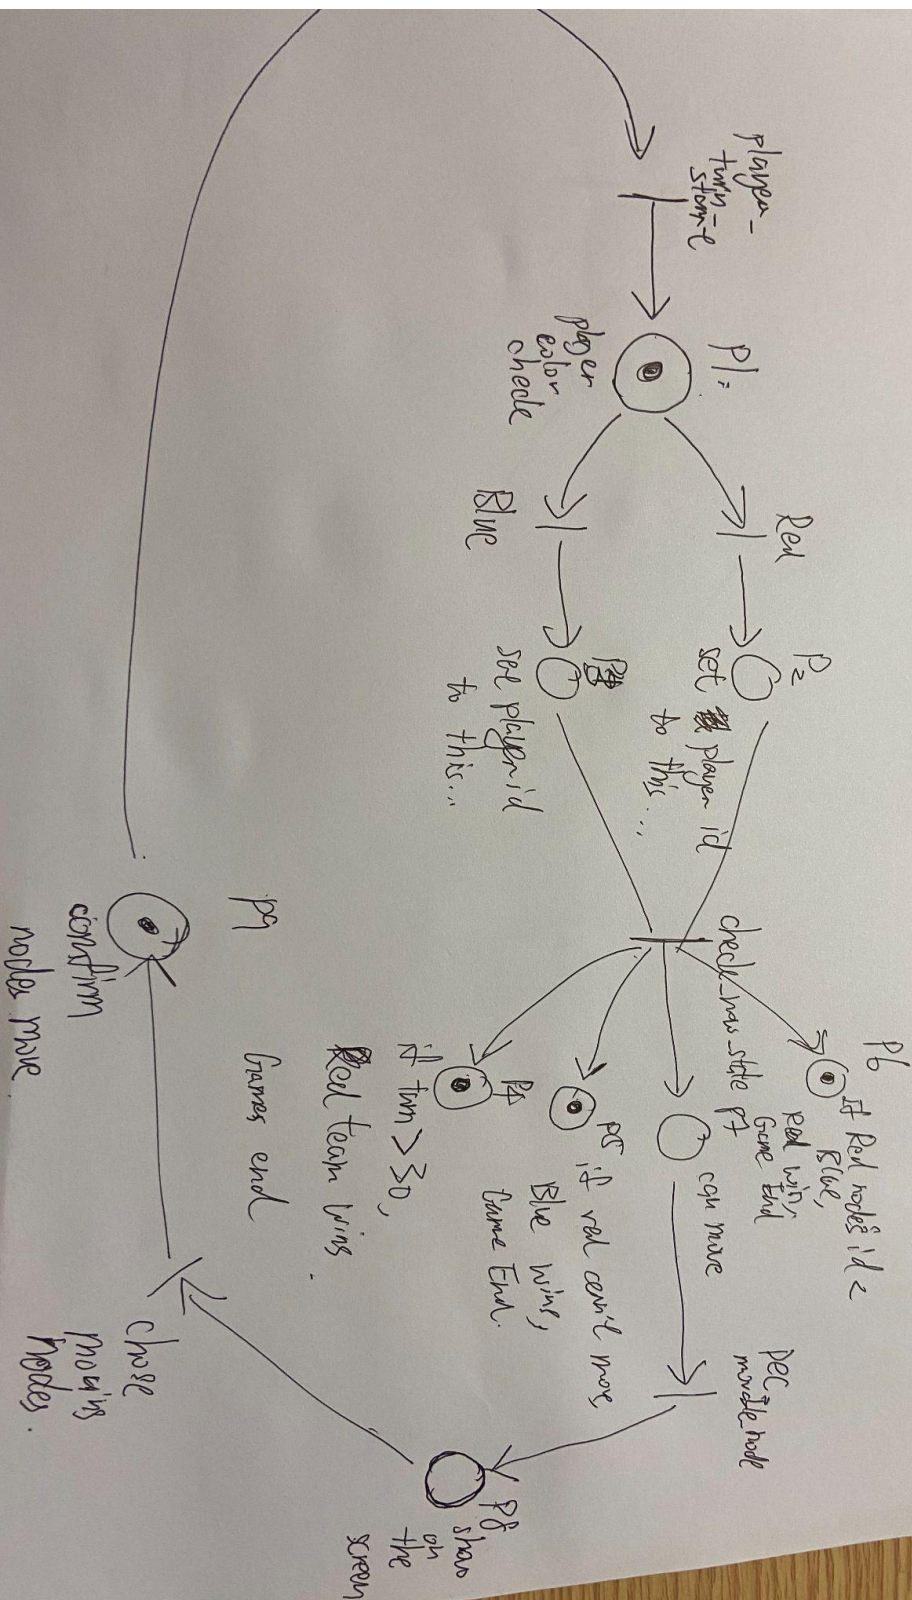 player_
turn_
P1:
player
color
check
Red
Blue
P2
set player id
to this...
see player id
to this...
check_now_state
P6
If Red nodes id <
Blue,
Red win,
Game End
P7
can move
P5 if red can't move,
Blue wins,
Game End.
P4
if turn > 30,
Red team wins.
Games end
DEC
movable_node
P8
show
on
the
screen
chose
moving
nodes.
P9
confirm
nodes move